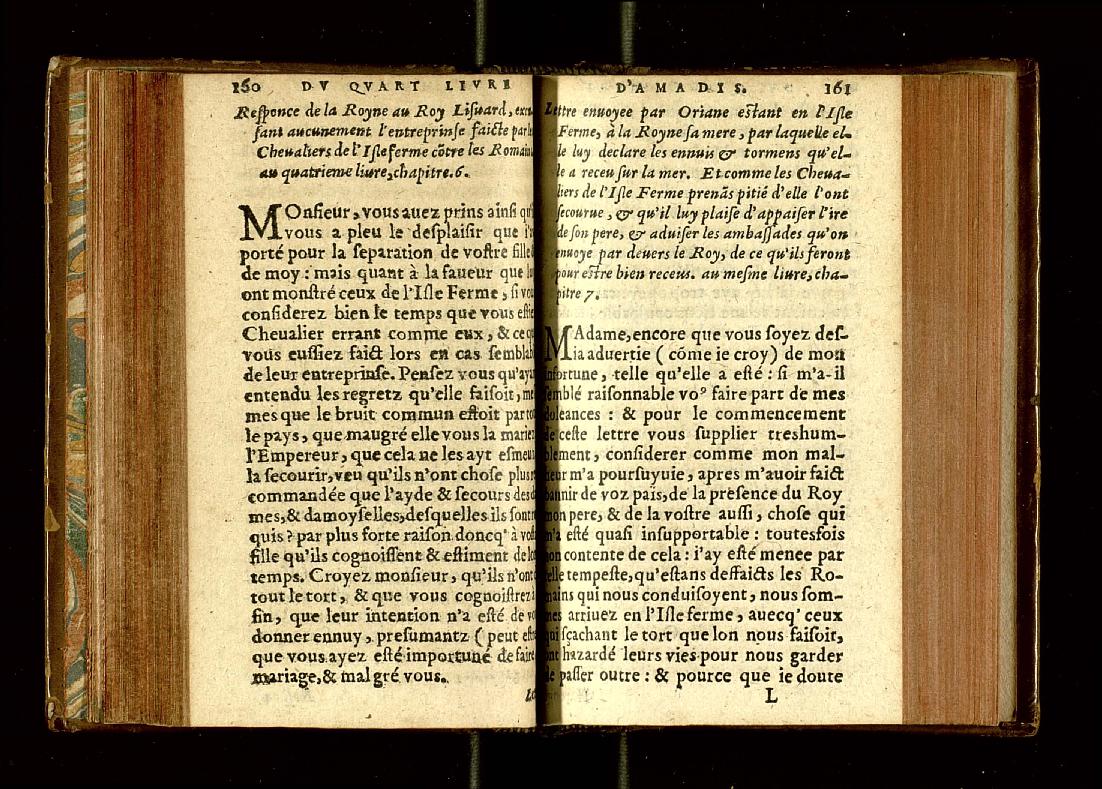 160 DV QVART LIVRE
Responce de la Royne au Roy Lisuard, excu
sant aucunement l'entreprinse faicte par
Cheualiers de l'Isle ferme cōtre les Romain
au quatrieme liure, chapitre. 6.
MOnsieur, vous auez prins ainsi
vous a pleu le desplaisir que
porté pour la separation de vostre fille
de moy : mais quant à la faueur que
ont monstré ceux de l'Isle Ferme, si vou
considerez bien le temps que vous
Cheualier errant comme eux, & ce
vous eussiez faict lors en cas semblab
de leur entreprinse. Pensez vous qu'aya
entendu les regretz qu'elle faisoit, me
mes que le bruit commun estoit par tou
le pays, que maugré elle vous la mariez
l'Empereur, que cela ne les ayt esmeuz
la secourir, veu qu'ils n'ont chose plus
commandée que l'ayde & secours des
mes, & damoyselles, desquelles ils sont
quis ? par plus forte raison doncq' à vost
fille qu'ils cognoissent & estiment de lo
temps. Croyez monsieur, qu'ils n'ont
tout le tort, & que vous cognoistrez
fin, que leur intention n'a esté de vo
donner ennuy, presumantz ( peut estre
que vous ayez esté importuné de faire
mariage, & malgré vous.
D'AMADIS. 161
Lettre enuoyee par Oriane estant en l'Isle
Ferme, à la Royne sa mere, par laquelle el-
le luy declare les ennuis & tormens qu'el-
le a receu sur la mer. Et comme les Cheua-
liers de l'Isle Ferme prenās pitié d'elle l'ont
secourue, & qu'il luy plaise d'appaiser l'ire
de son pere, & aduiser les ambassades qu'on
enuoye par deuers le Roy, de ce qu'ils feront
pour estre bien receus. au mesme liure, cha-
pitre 7.
MAdame, encore que vous soyez des-
ia aduertie ( cōme ie croy ) de mon
infortune, telle qu'elle a esté : si m'a-il
semblé raisonnable voꝰ faire part de mes
doleances : & pour le commencement
de ceste lettre vous supplier treshum-
blement, considerer comme mon mal-
heur m'a poursuyuie, apres m'auoir faict
bannir de voz païs, de la presence du Roy
mon pere, & de la vostre aussi, chose qui
m'a esté quasi insupportable : toutesfois
non contente de cela : i'ay esté menee par
telle tempeste, qu'estans deffaicts les Ro-
mains qui nous conduisoyent, nous som-
mes arriuez en l'Isle ferme, auecq' ceux
qui sçachant le tort que lon nous faisoit,
ont hazardé leurs vies pour nous garder
de passer outre : & pource que ie doute
L